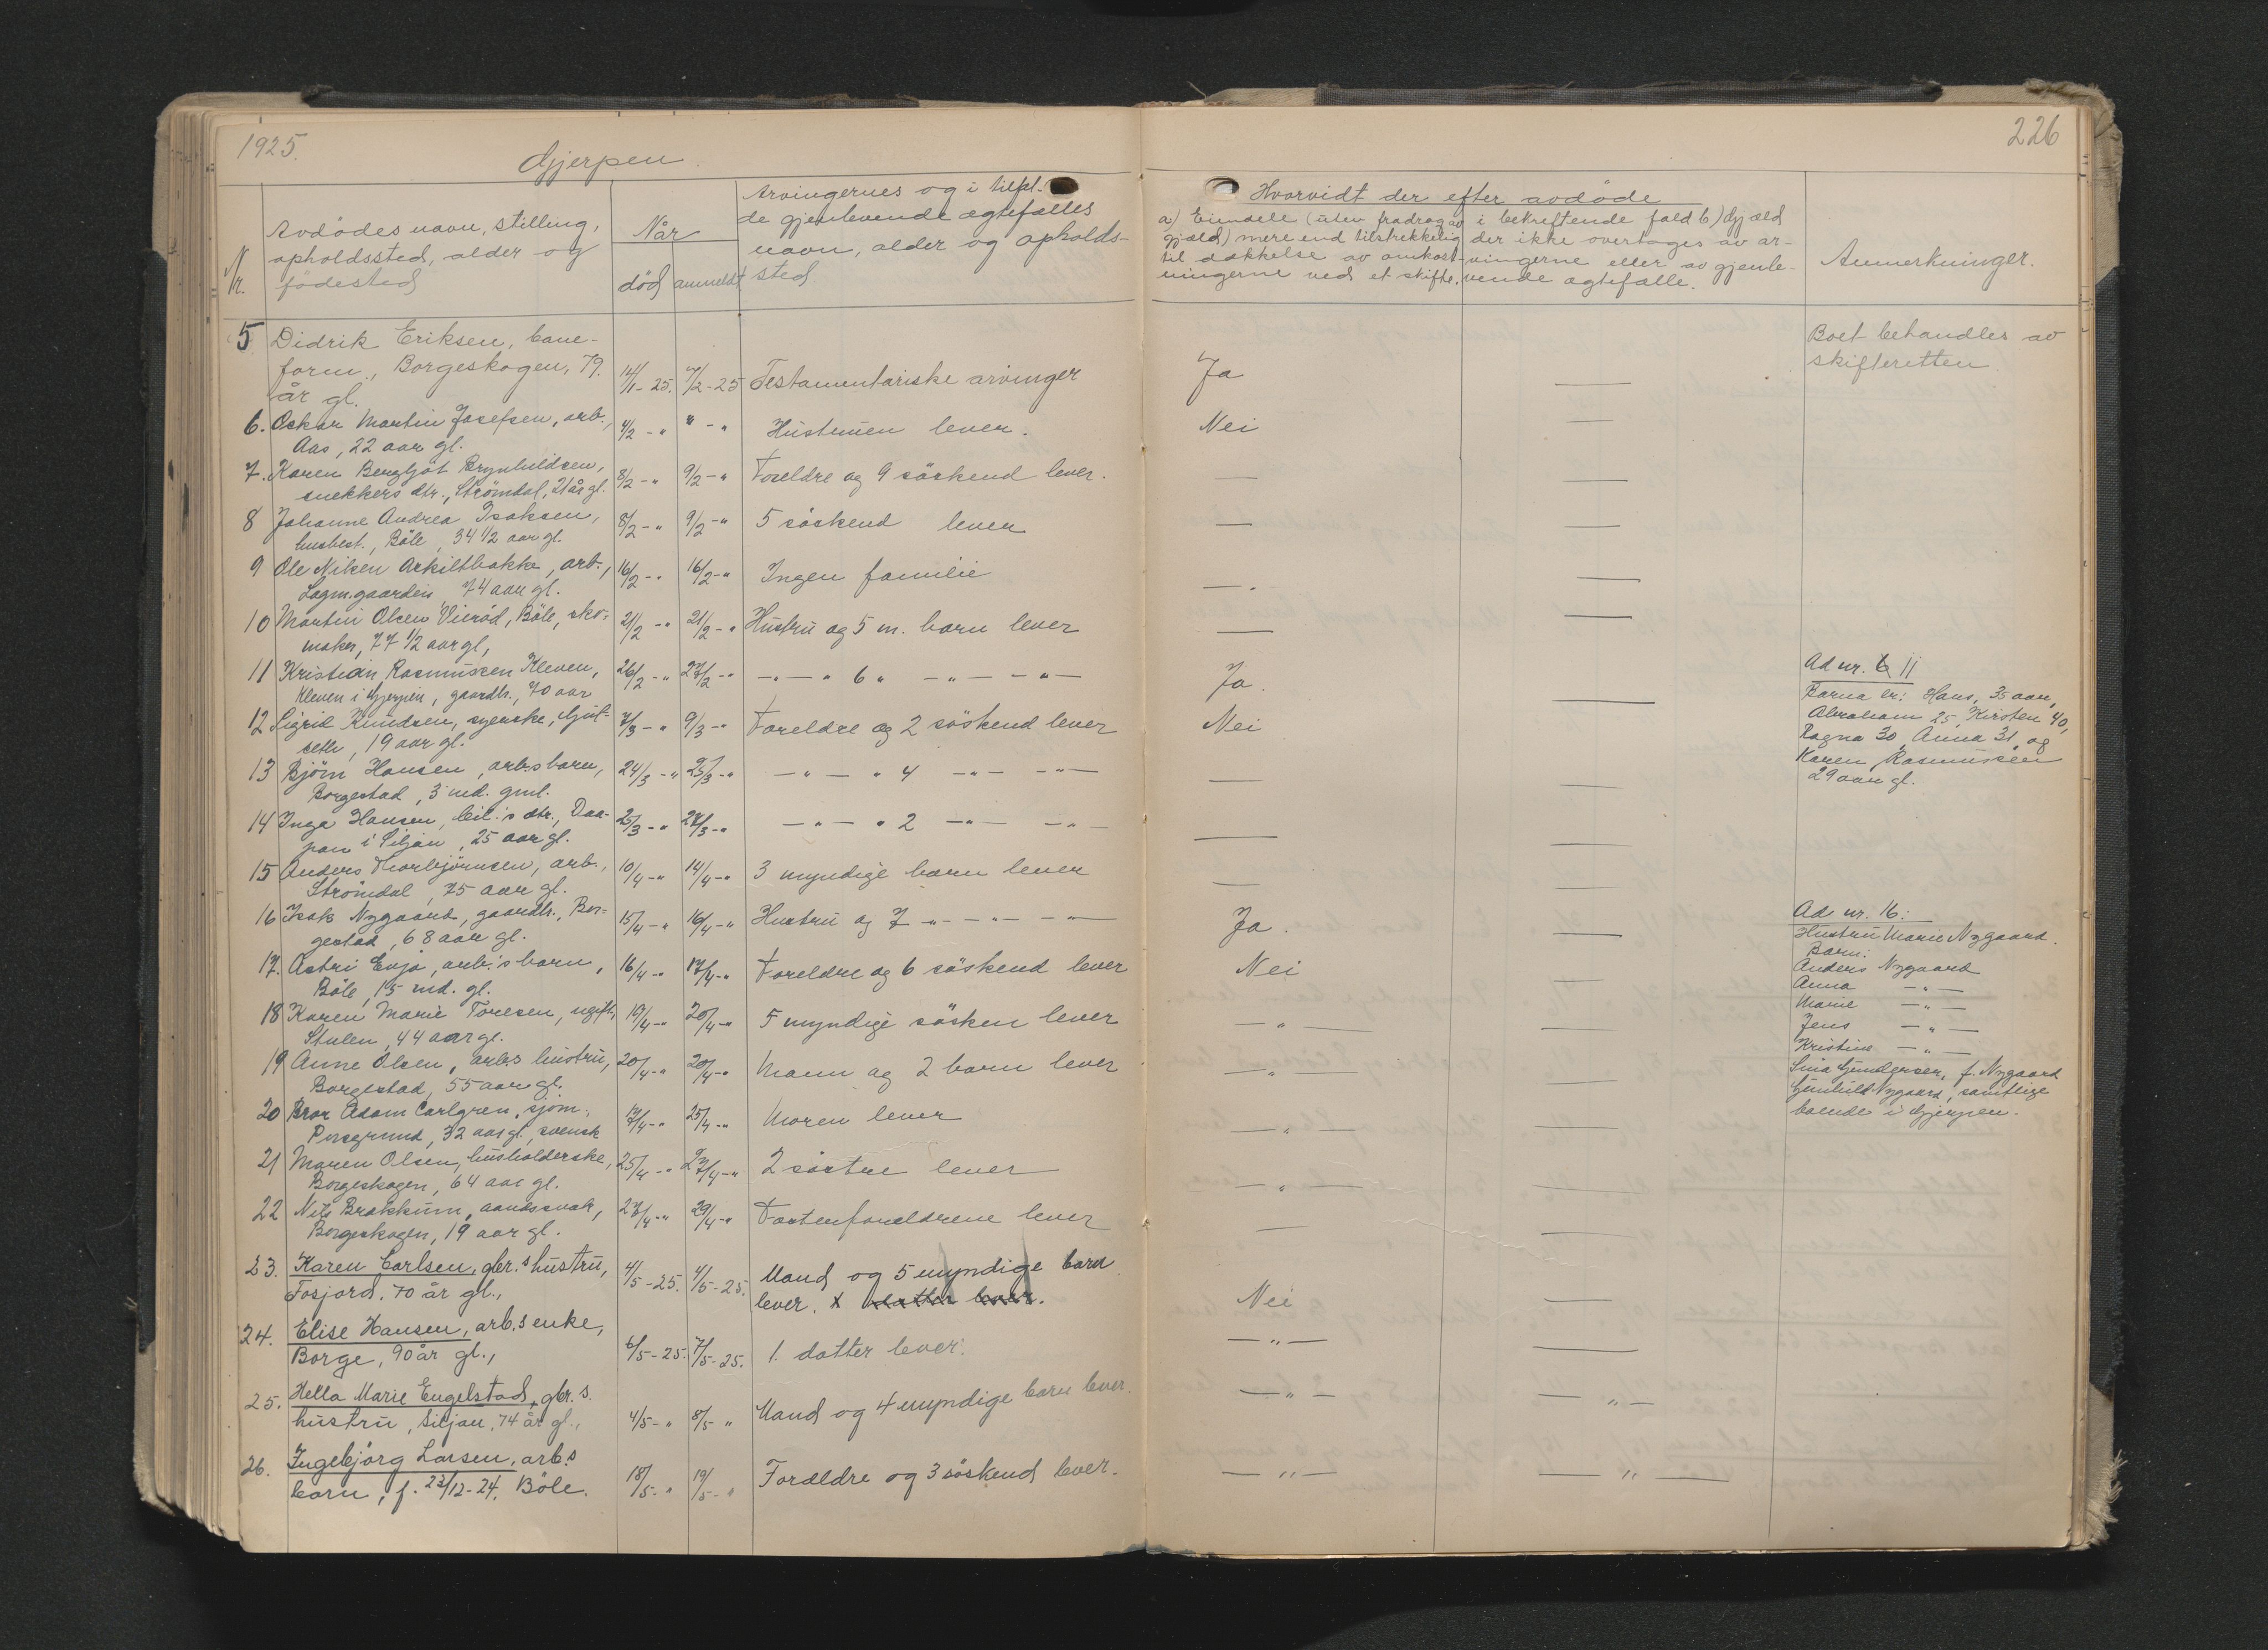 1925.
226
Gjerpen.
Nr.
Avdödes navn, stilling,
opholdssted, alder og
födested
Når
död
anmeldt
Arvingernes og i tilfæl-
de gjenlevende ægtefælles
navn, alder og opholds-
sted
Hvorvidt der efter avdöde
a) Eiendele (uten fradrag av
gjæld) mere end tilstrekkelig
til dækkelse av omkost-
ningerne ved et skifte.
i bekreftende fald b) Gjæld
der ikke overtages av ar-
vingerne eller av gjenle-
vende ægtefælle.
Anmerkninger.
5 Didrik Eriksen, bane-
form., Borgeskogen, 79.
år gl.
14/1-25. 7/2-25 Testamentariske arvinger Ja —
Boet behandles av
skifteretten
6. Oskar Martin Josefsen, arb.,
Aas, 22 aar gl.
4/2 - " " - " Hustruen lever. Nei —
7. Karen Bergljot Brynhildsen,
snekkers dtr., Strömdal, 21 år gl.
8/2 - " 9/2 - " Foreldre og 9 söskend lever. — —
8 Johanne Andrea Isaksen,
husbest., Böle, 34 1/2 aar gl.
8/2 - " 9/2 - " 5 söskend lever — —
9 Ole Nilsen Arkiltbakke, arb.,
Lagm.gaarden 74 aar gl.
16/2 - " 16/2 - " Ingen familie — —
10 Martin Olsen Vieröd, Böle, sko-
maker, 77 1/2 aar gl,
21/2 - " 21/2 - " Hustru og 5 m. barn lever — —
11 Kristian Rasmussen Kleven,
Kleven i Gjerpen, gaardbr., 70 aar
26/2 - " 27/2 - " — " — " 6 " — " — — " — Ja. —
Ad nr. 11
Barna er: Hans, 35 aar,
Abraham 25, Kirsten 40,
Ragna 30, Anna 31, og
Karen Rasmussen
29 aar gl.
12 Sigrid Knudsen, syerske,
19 aar gl.
7/3 - " 9/3 - " Foreldre og 2 söskend lever Nei —
13 Björn Hansen, arb.sbarn,
Borgestad, 3 md. gml.
24/3 - " 25/3 - " — " — " 4 — " — — " — — —
14 Inga Hansen, dtr., Daa-
pan i Siljan, 25 aar gl.
25/3 - " 28/3 - " — " — " 2 — " — — " — — —
15 Anders Thorbjörnsen, arb.,
Strömdal, 75 aar gl.
10/4 - " 14/4 - " 3 myndige barn lever — —
16 Isak Nygaard, gaardbr., Bor-
gestad, 68 aar gl.
15/4 - " 16/4 - " Hustru og 7 — " — " — — " — Ja. —
Ad nr. 16:
Hustru Marie Nygaard.
Barn:
Anders Nygaard
Anna — " —
Marie — " —
Jens — " —
Kristine — " —
Sina Gundersen, f. Nygaard
Gunhild Nygaard, samtlige
boende i Gjerpen.
17. Astri Evja, arb.'s barn,
Böle, 15 md. gl.
16/4 - " 17/4 - " Foreldre og 6 söskend lever Nei —
18 Karen Marie Toresen, ugift,
Stulen, 44 aar gl.
19/4 - " 20/4 - " 5 myndige sösken lever — " — —
19 Anne Olsen, arb.s hustru,
Borgestad, 55 aar gl.
20/4 - " 20/4 - " Mann og 2 barn lever — " — —
20 Bror Adam Carlgren, sjöm.,
Porsgrund, 32 aar gl., svensk
17/4 - " 25/4 - " Moren lever — " — —
21 Maren Olsen, husholderske,
Borgeskogen, 64 aar gl.
25/4 - " 27/4 - " 2 söstre lever — " — —
22 Nils Brakkum, aandssvak,
Borgeskogen, 19 aar gl.
27/4 - " 29/4 - " Fosterforeldrene lever — —
23. Karen Carlsen, gbr.s hustru,
Fosjord, 70 år gl.,
4/5-25. 4/5-25. Mand og 5 myndige barn
lever. x datter lever. Nei —
24. Elise Hansen, arb.s enke,
Borge, 90 år gl.,
6/5-25. 7/5-25. 1 datter lever. — " — —
25. Hella Marie Engelstad, gbr.s.
hustru, Siljan, 74 år gl.,
4/5 - " 8/5 - " Mand og 4 myndige barn lever. — " — — " —
26. Ingebjörg Larsen, arb.s
barn, f. 23/12-24, Böle.
18/5 - " 19/5 - " Forældre og 3 söskend lever. — " — — " —